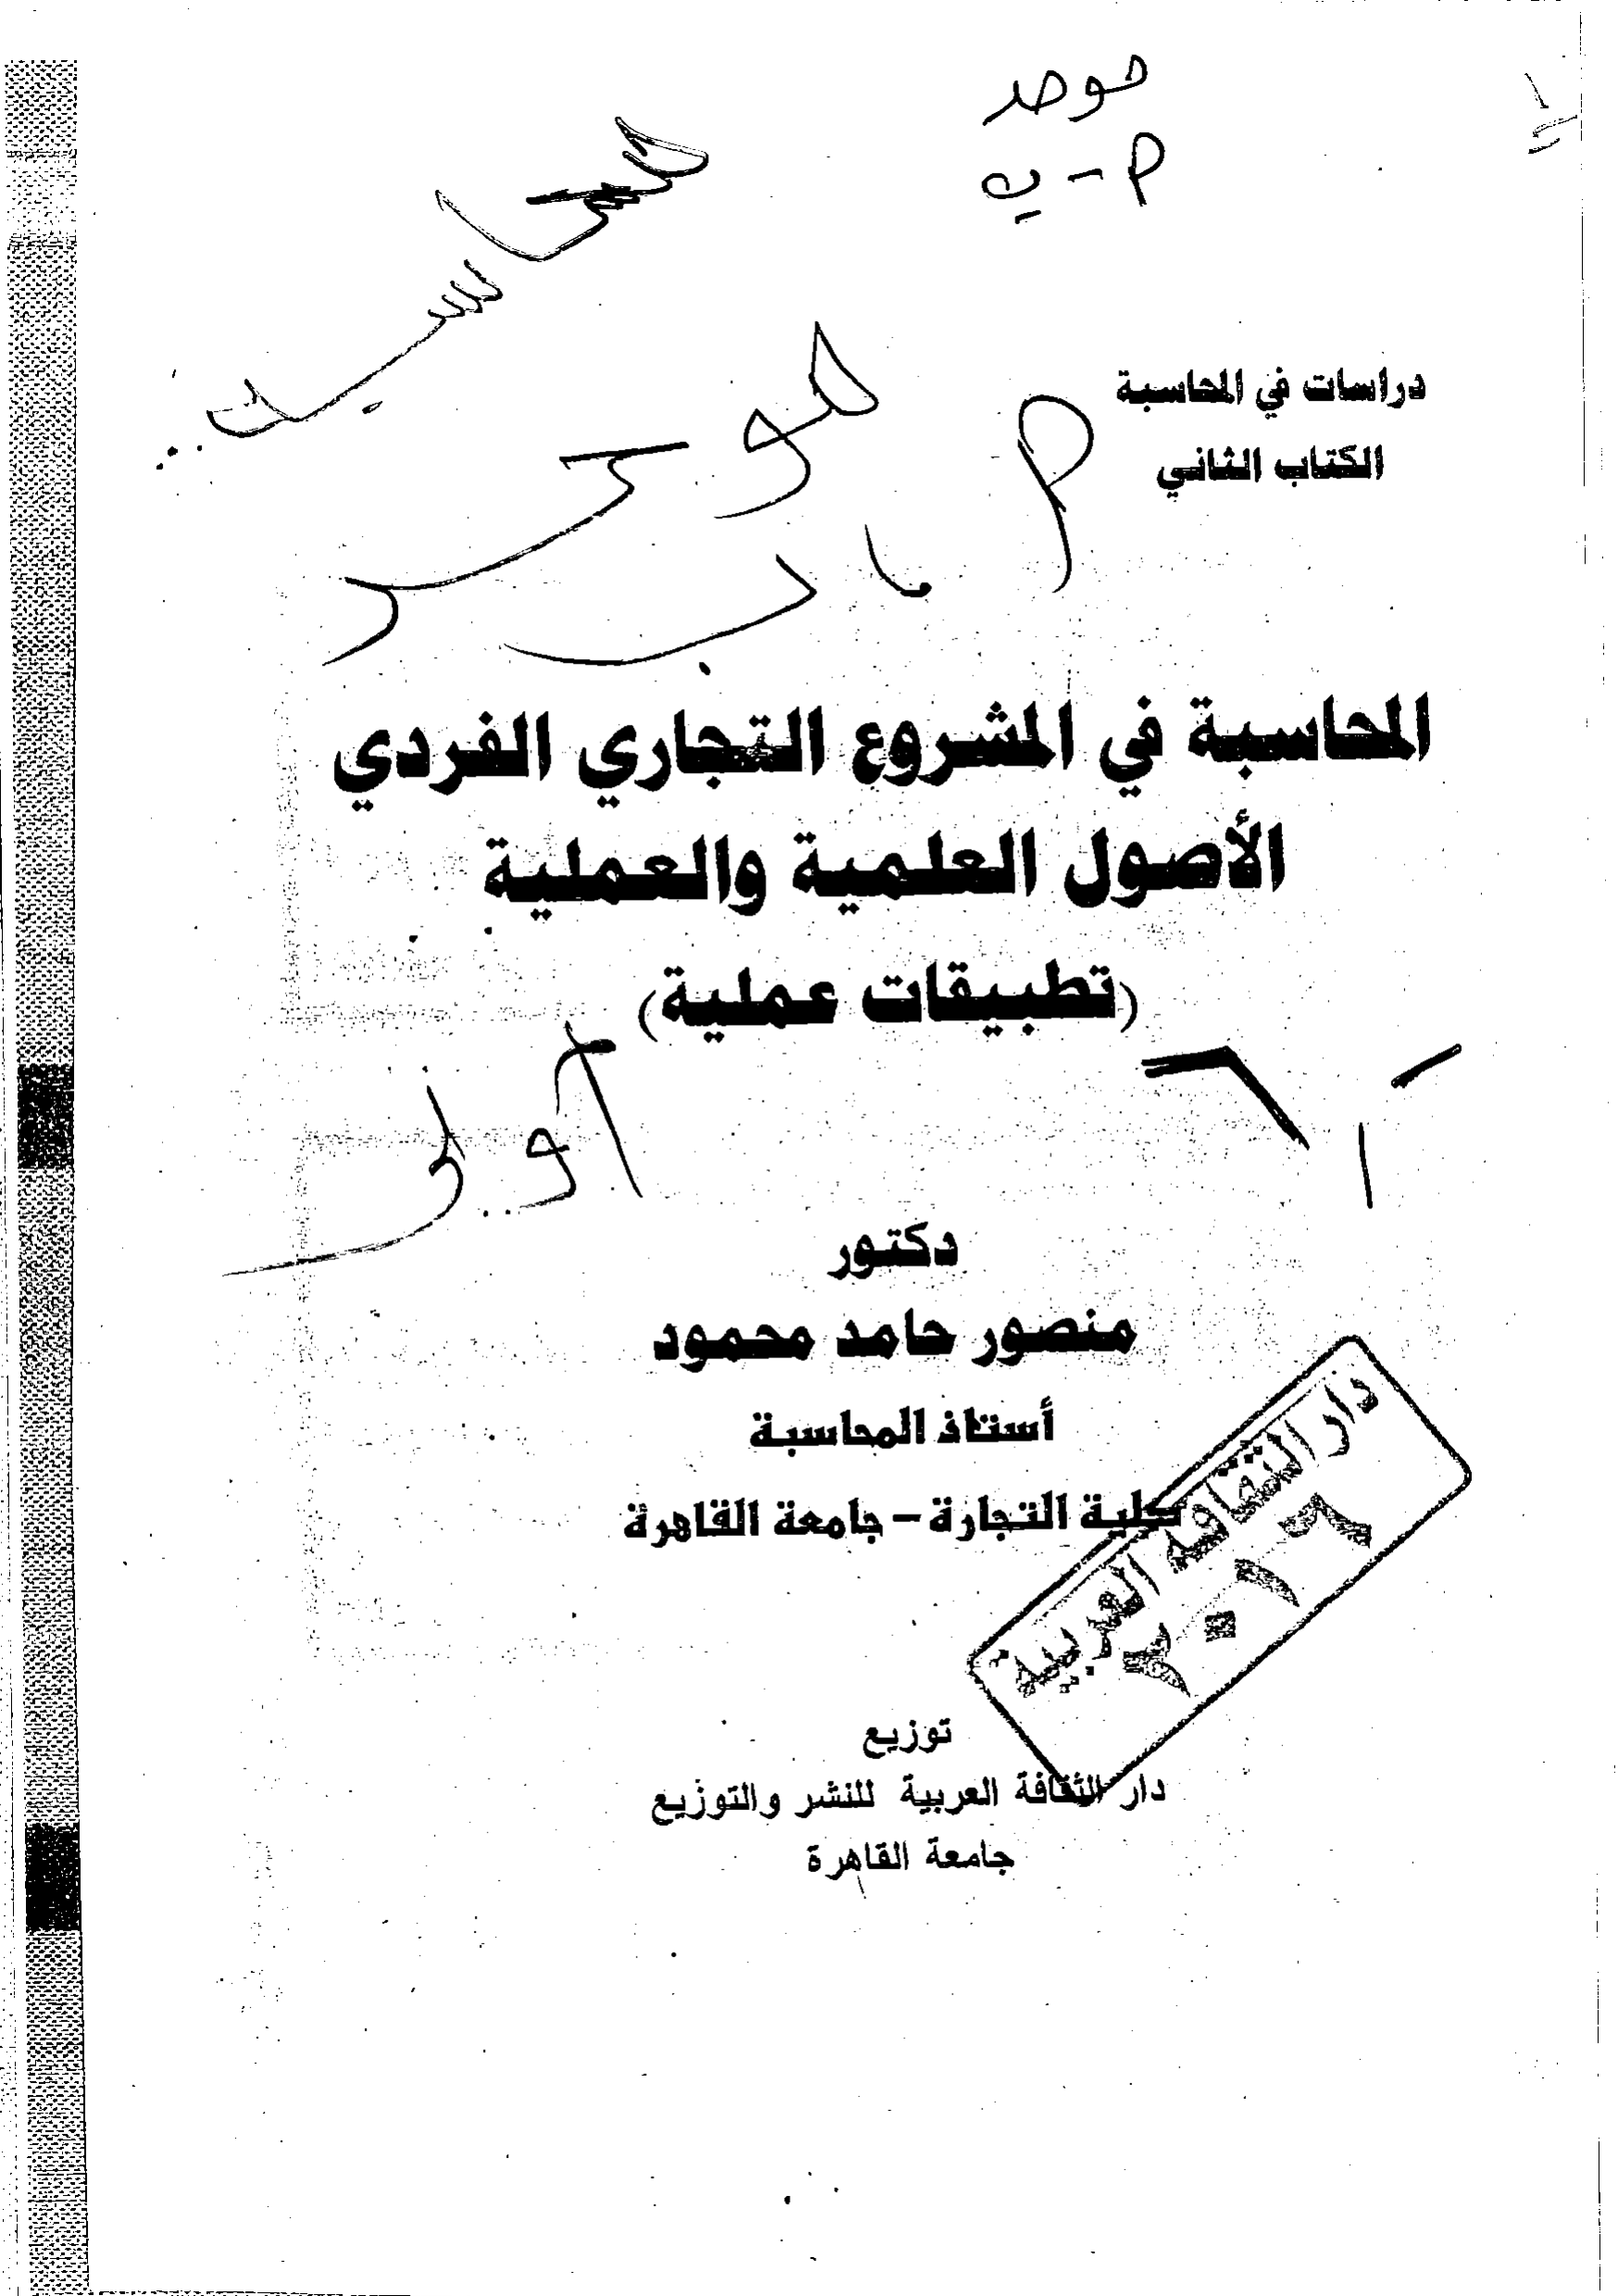 موحد
دراسات في المحاسبة
الكتاب الثاني
المحاسبة في المشروع التجاري الفردي
الأصول العلمية والعملية
(تطبيقات عملية)
أولى
دكتور
منصور حامد محمود
أستاذ المحاسبة
كلية التجارة - جامعة القاهرة
دار الثقافة العربية
٢٠١٦
توزيع
دار الثقافة العربية للنشر والتوزيع
جامعة القاهرة